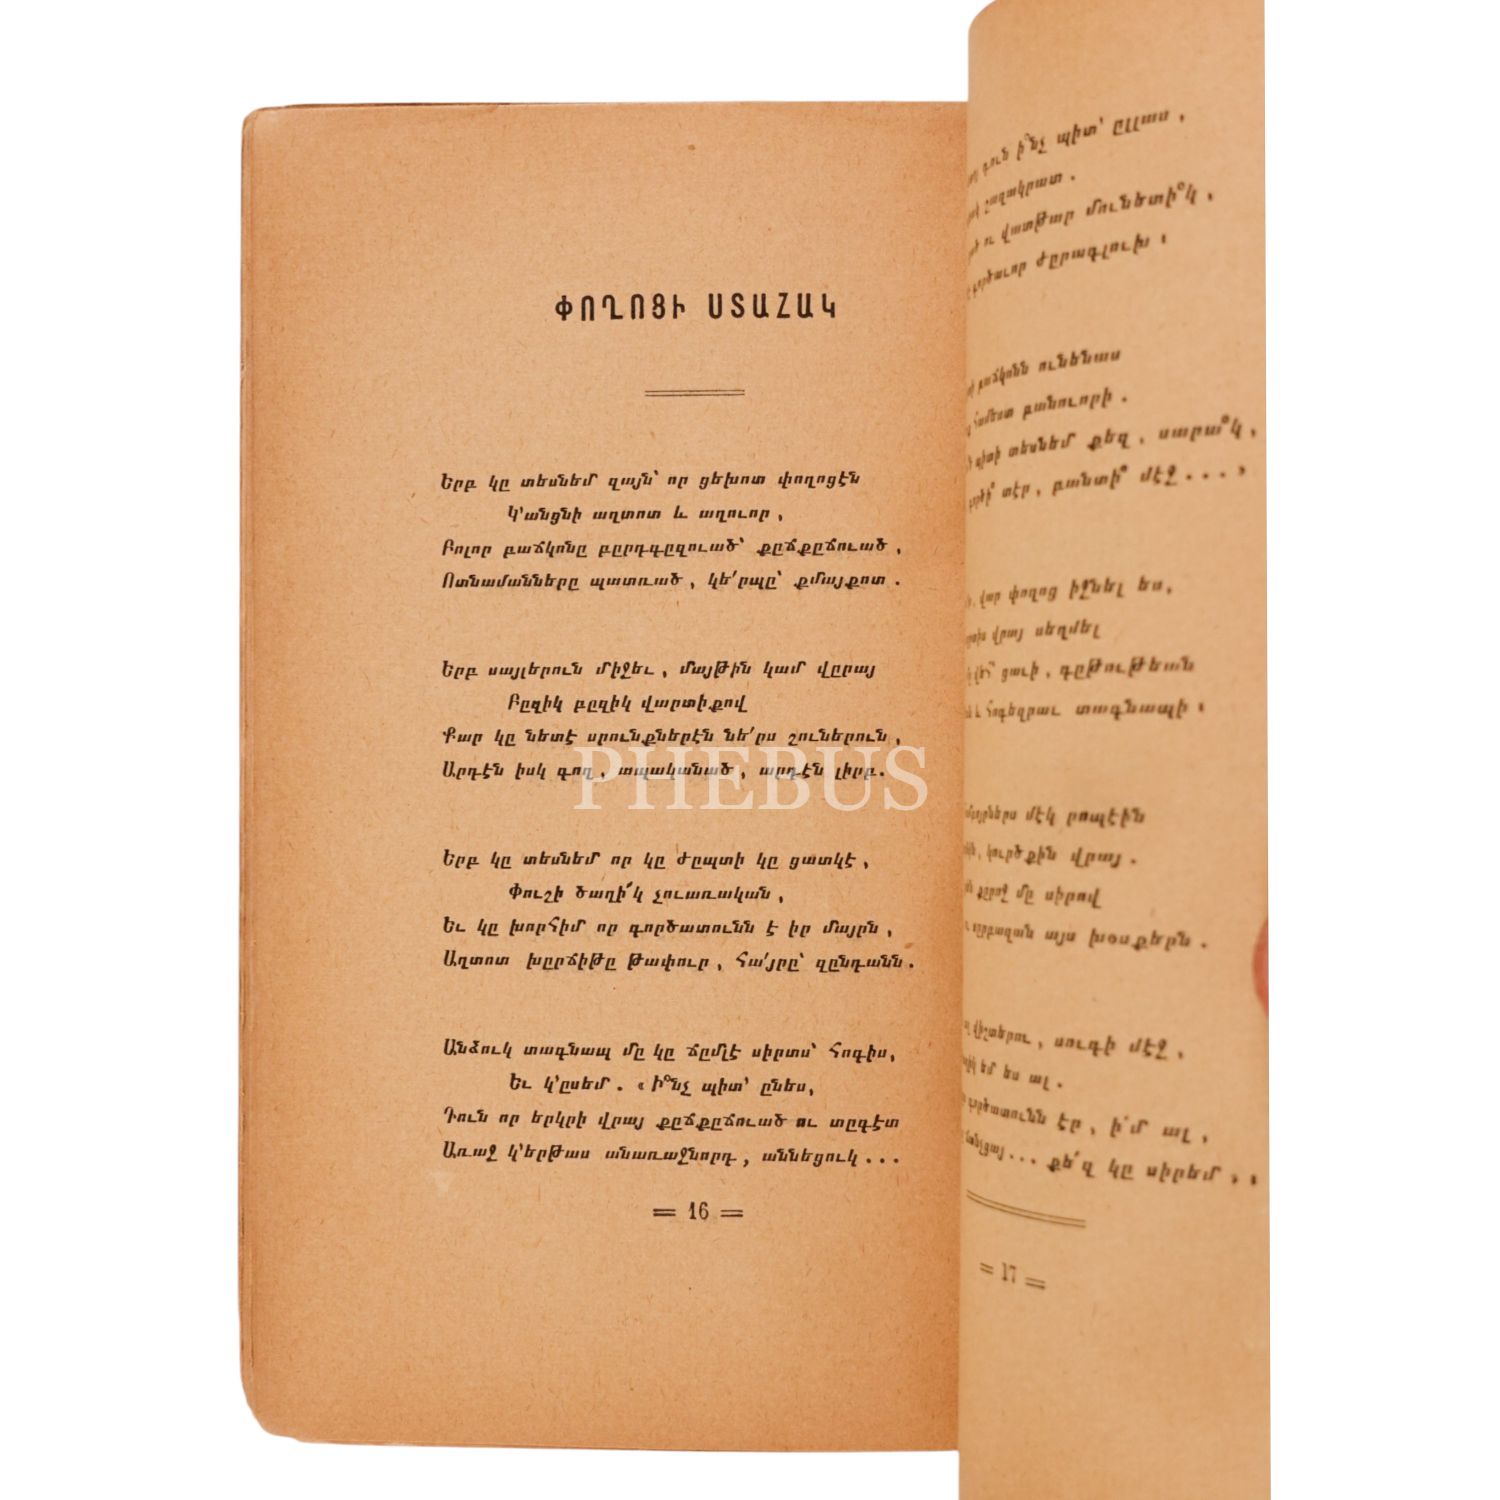 ՓՈՂՈՑԻ ՍՏԱՀԱԿ
Երբ կը տեսնեմ զայն՝ որ ցեխոտ փողոցէն
Կ՚անցնի աղտոտ և աղուոր,
Բոլոր բաճկոնը բըրդգըզուած՝ քըճքըճուած,
Ոտնամանները պատռած, կե՛րպը՝ քմայքոտ.
Երբ սայլերուն միջեւ, մայթին կամ վըրայ
Բըզիկ բըզիկ վարտիքով
Քար կը նետէ սրունքներէն նե՛րս շուներուն,
Արդէն իսկ գող, ապականած, արդէն լիրբ.
Երբ կը տեսնեմ որ կը ժըպտի կը ցատկէ,
Փուշի ծաղի՜կ չուառական,
Եւ կը խորհիմ որ գործատունն է իր մայրն,
Աղտոտ խըրճիթը թափուր, հա՛յրը՝ զընդանն.
Անձուկ տագնապ մը կը ճըմլէ սիրտս՝ հոգիս,
Եւ կ՚ըսեմ. «Ի՞նչ պիտ՚ ընես,
Դուն որ երկրի վրայ քըճքըճուած ու տըգէտ
Առաջ կ՚երթաս անառաջնորդ, աննեցուկ...
= 16 =
PHEBUS
դուն ի՞նչ պիտ՚ ըլլաս,
շաղակրատ.
ու վատթար մունետի՞կ,
ժըրագլուխ,
բաճկոնն ունենաս
համեստ բանուորի.
պիտի տեսնեմ քեզ, սարա՞կ,
տէր, բանտի՞ մէջ...,
վար փողոց իջնել ես,
վրայ սեղմել
ցաւի, գըթութեան
և հոգեզրաւ տագնապի,
մէկ րոպէին
կուրծքին վրայ.
քըրոջ մը սիրով
այս խօսքերն.
վիշտերու, սուգի մէջ,
եմ ես ալ.
գործատունն էր, ի՛մ ալ,
քե՛զ կը սիրեմ,,
= 17 =